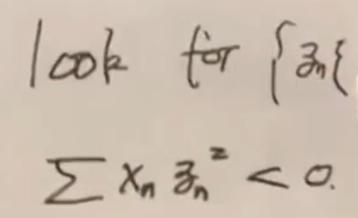 look for {z_n}
∑ x_n z_n² < 0.